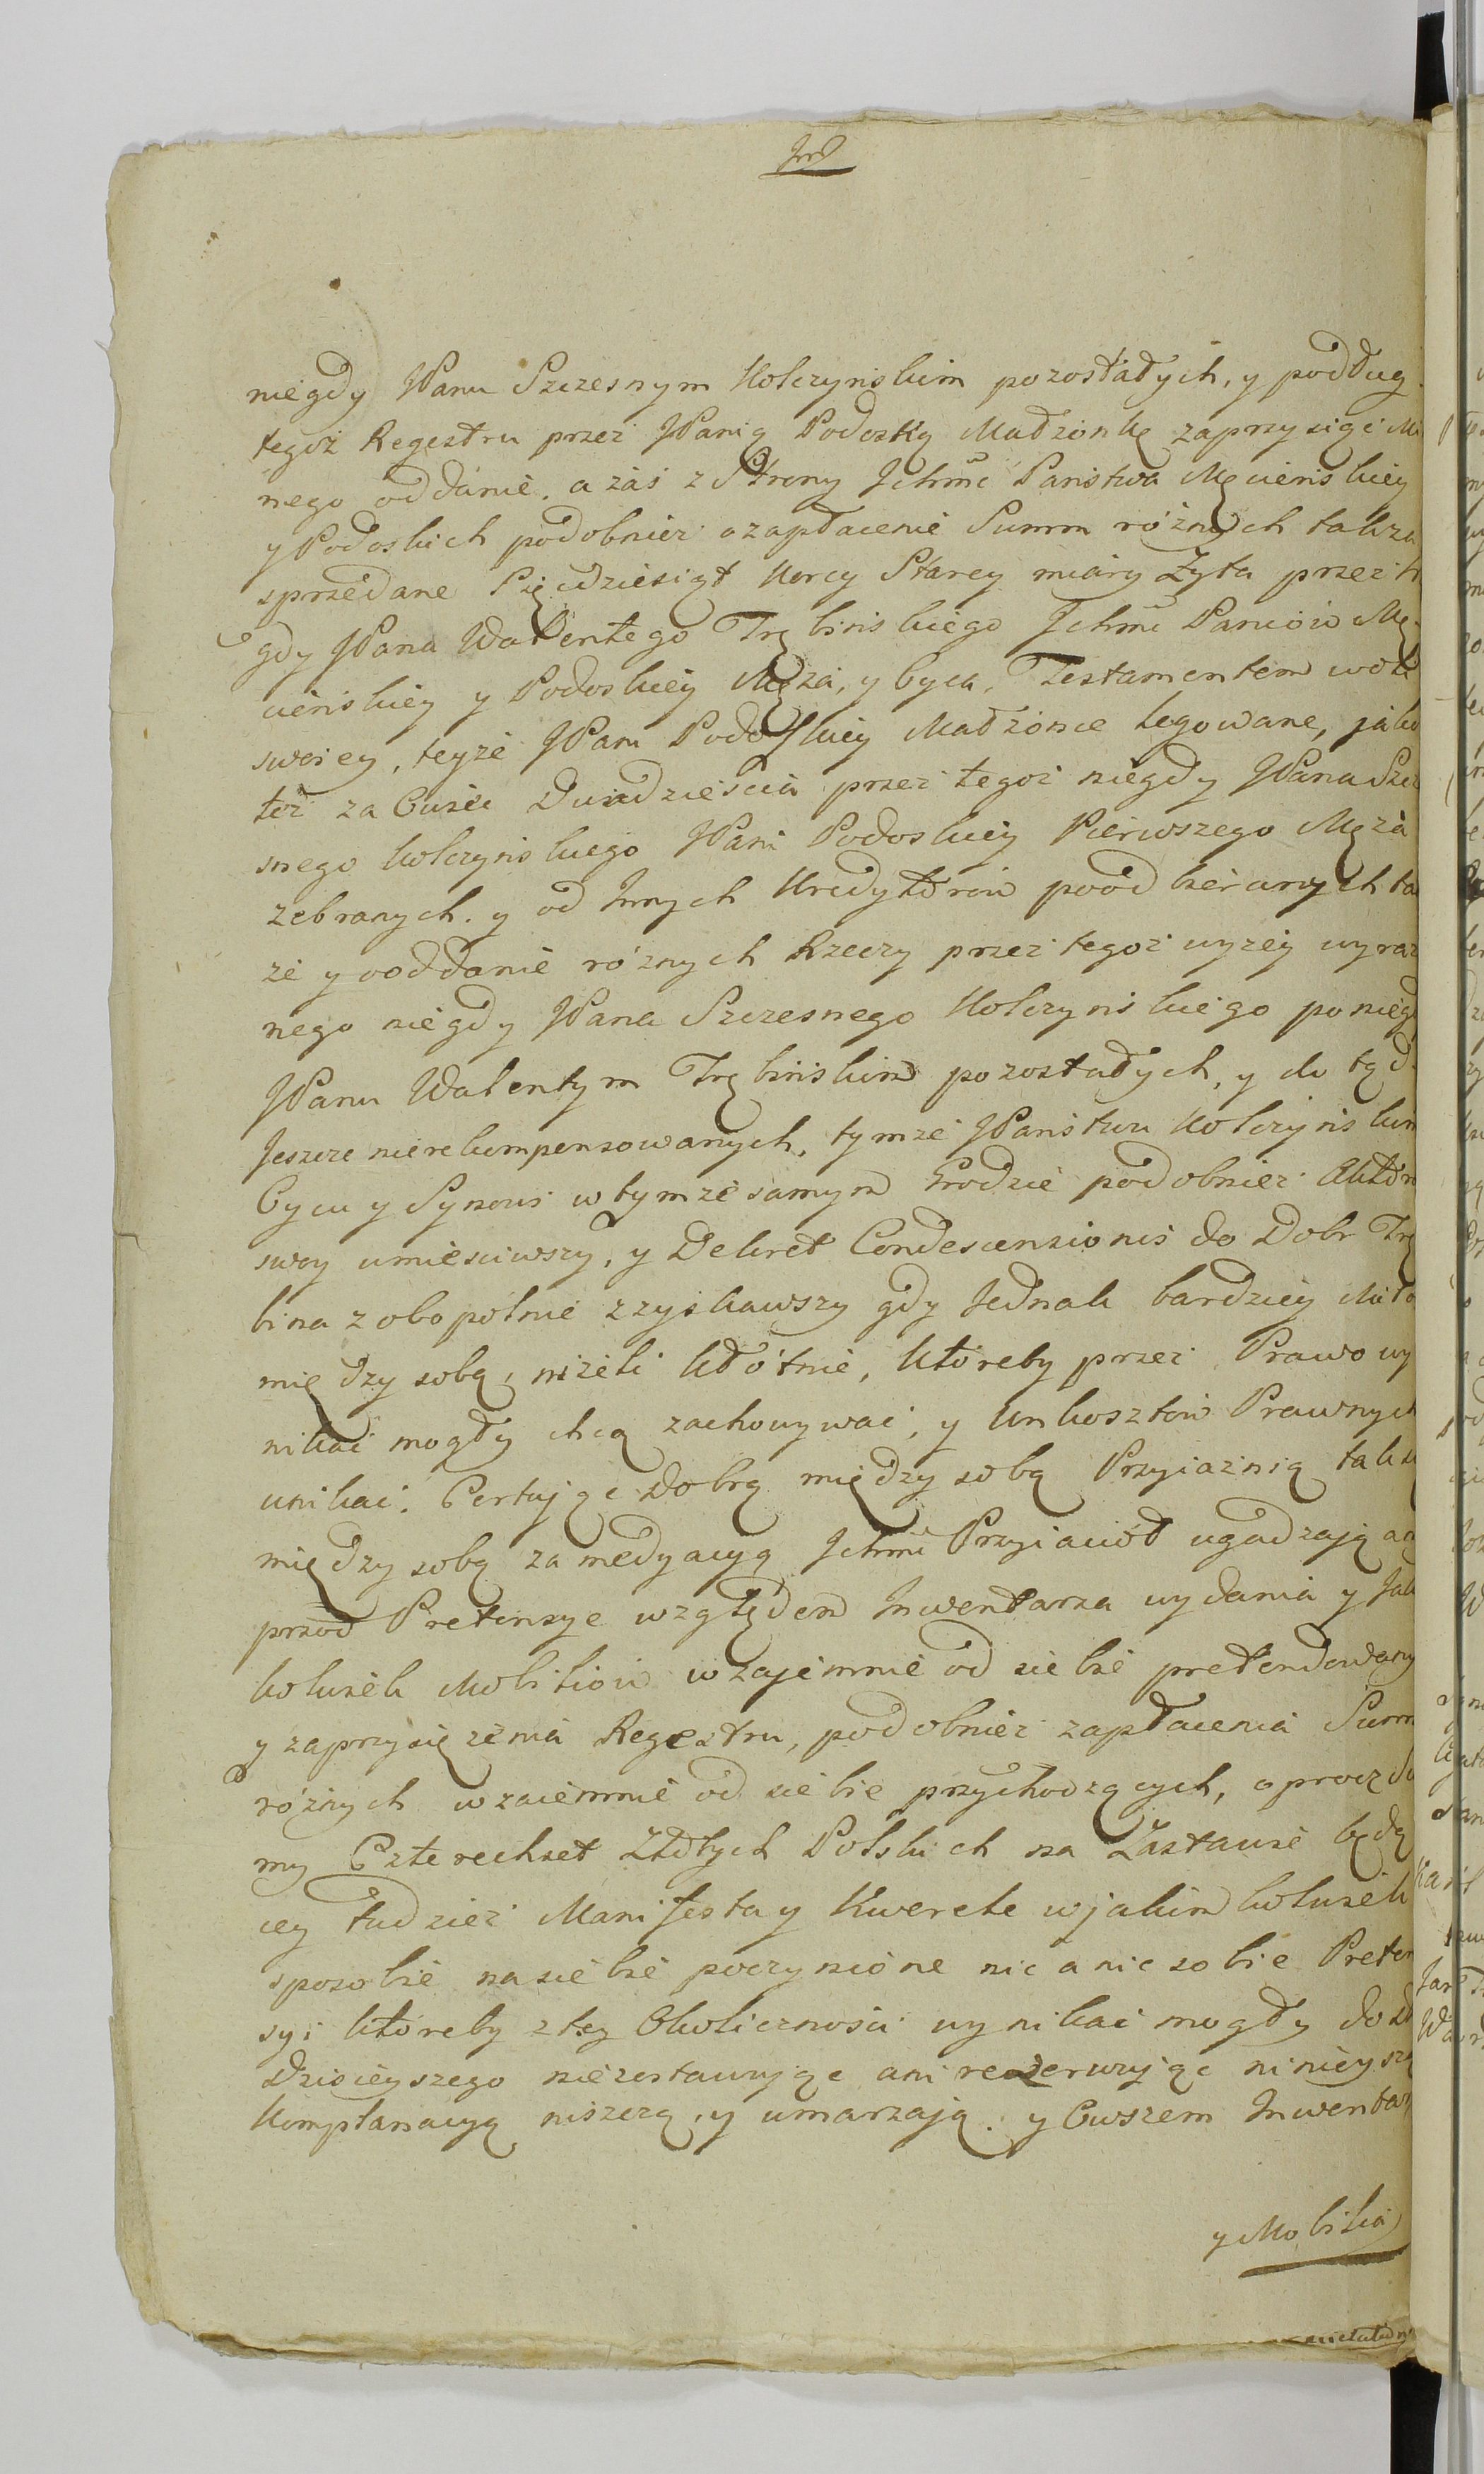 niegdy JPanu Szczesnym Kolczynskim pozostałych, y podług
tegoż Regestru przez JPanią Podoską Małżonkę zaprzysięże
nego oddanie. a zaś z Strony Jchmć Państwa Męcienskiey
y Podoskich podobnież o zapłacenie Summ różnych tak za
sprzedane Pięcdziesiąt Korcy Starey miary Żyta przez
gdy JPana Walentego Trębinskiego Jchmć Paniow Mę
cienskiey y Podoskiey Męża, y Oyca, Testamentem
swoiey, teyże JPani Podoskiey Małżonce legowane, jako
też za Owiec Dwadzieścia przez tegoż niegdy JPana Szcze
snego Kolczynskiego JPani Podoskiey Pierwszego Męża
zebranych. y od Innych Kredytorow poodbieranych
że y o oddanie różnych Rzeczy przez tegoż wyżey wyraz
nego niegdy JPana Szczesnego Kolczynskiego po niegdy
JPanu Walentym Trębinskim pozostałych, y do tąd
Jeszcze nierekompensowanych, tymże JPaństwu Kolczynskim
Oycu y Synowi w tymże samym Grodzie podobnież Aktorat
swoy umiesciwszy, y Dekret Condescensionis do Dobr Trę
bina z obopolnie zzyskawszy gdy Jednak bardziey
między sobą, niżeli kłótnie, ktoreby przez Prawo wy
nikać mogły chcą zachowywać, y Unkosztow Prawnych
unikać. Certując dobrą między sobą Przyiaznią tak
między sobą za medyacyą Jchmć Przyiaciół ugadzają
przod Pretensye względem Inwentarza wydania y Jak
kolwiek Mobiliow wzajemnie od siebie pretendowany
y zaprzysiężenia Regestru, podobnież zapłacenia Summ
różnych wzaiemnie od siebie przychodzących, oprocz
my Czterechset Złotych Polskich na Zastawie będą
cey tudzież Manifesta y Kwerele w jakim kolwiek
sposobie na siebie poczynióne nic a nic sobie Preten
syi ktoreby z tey Okoliczności wynikać mogły do
Dzisieyszego niezostawując ani rezerwując ninieyszą
Komplanacyą niszczą, y umarzają. y Owszem Inwentarz
y Mobilia